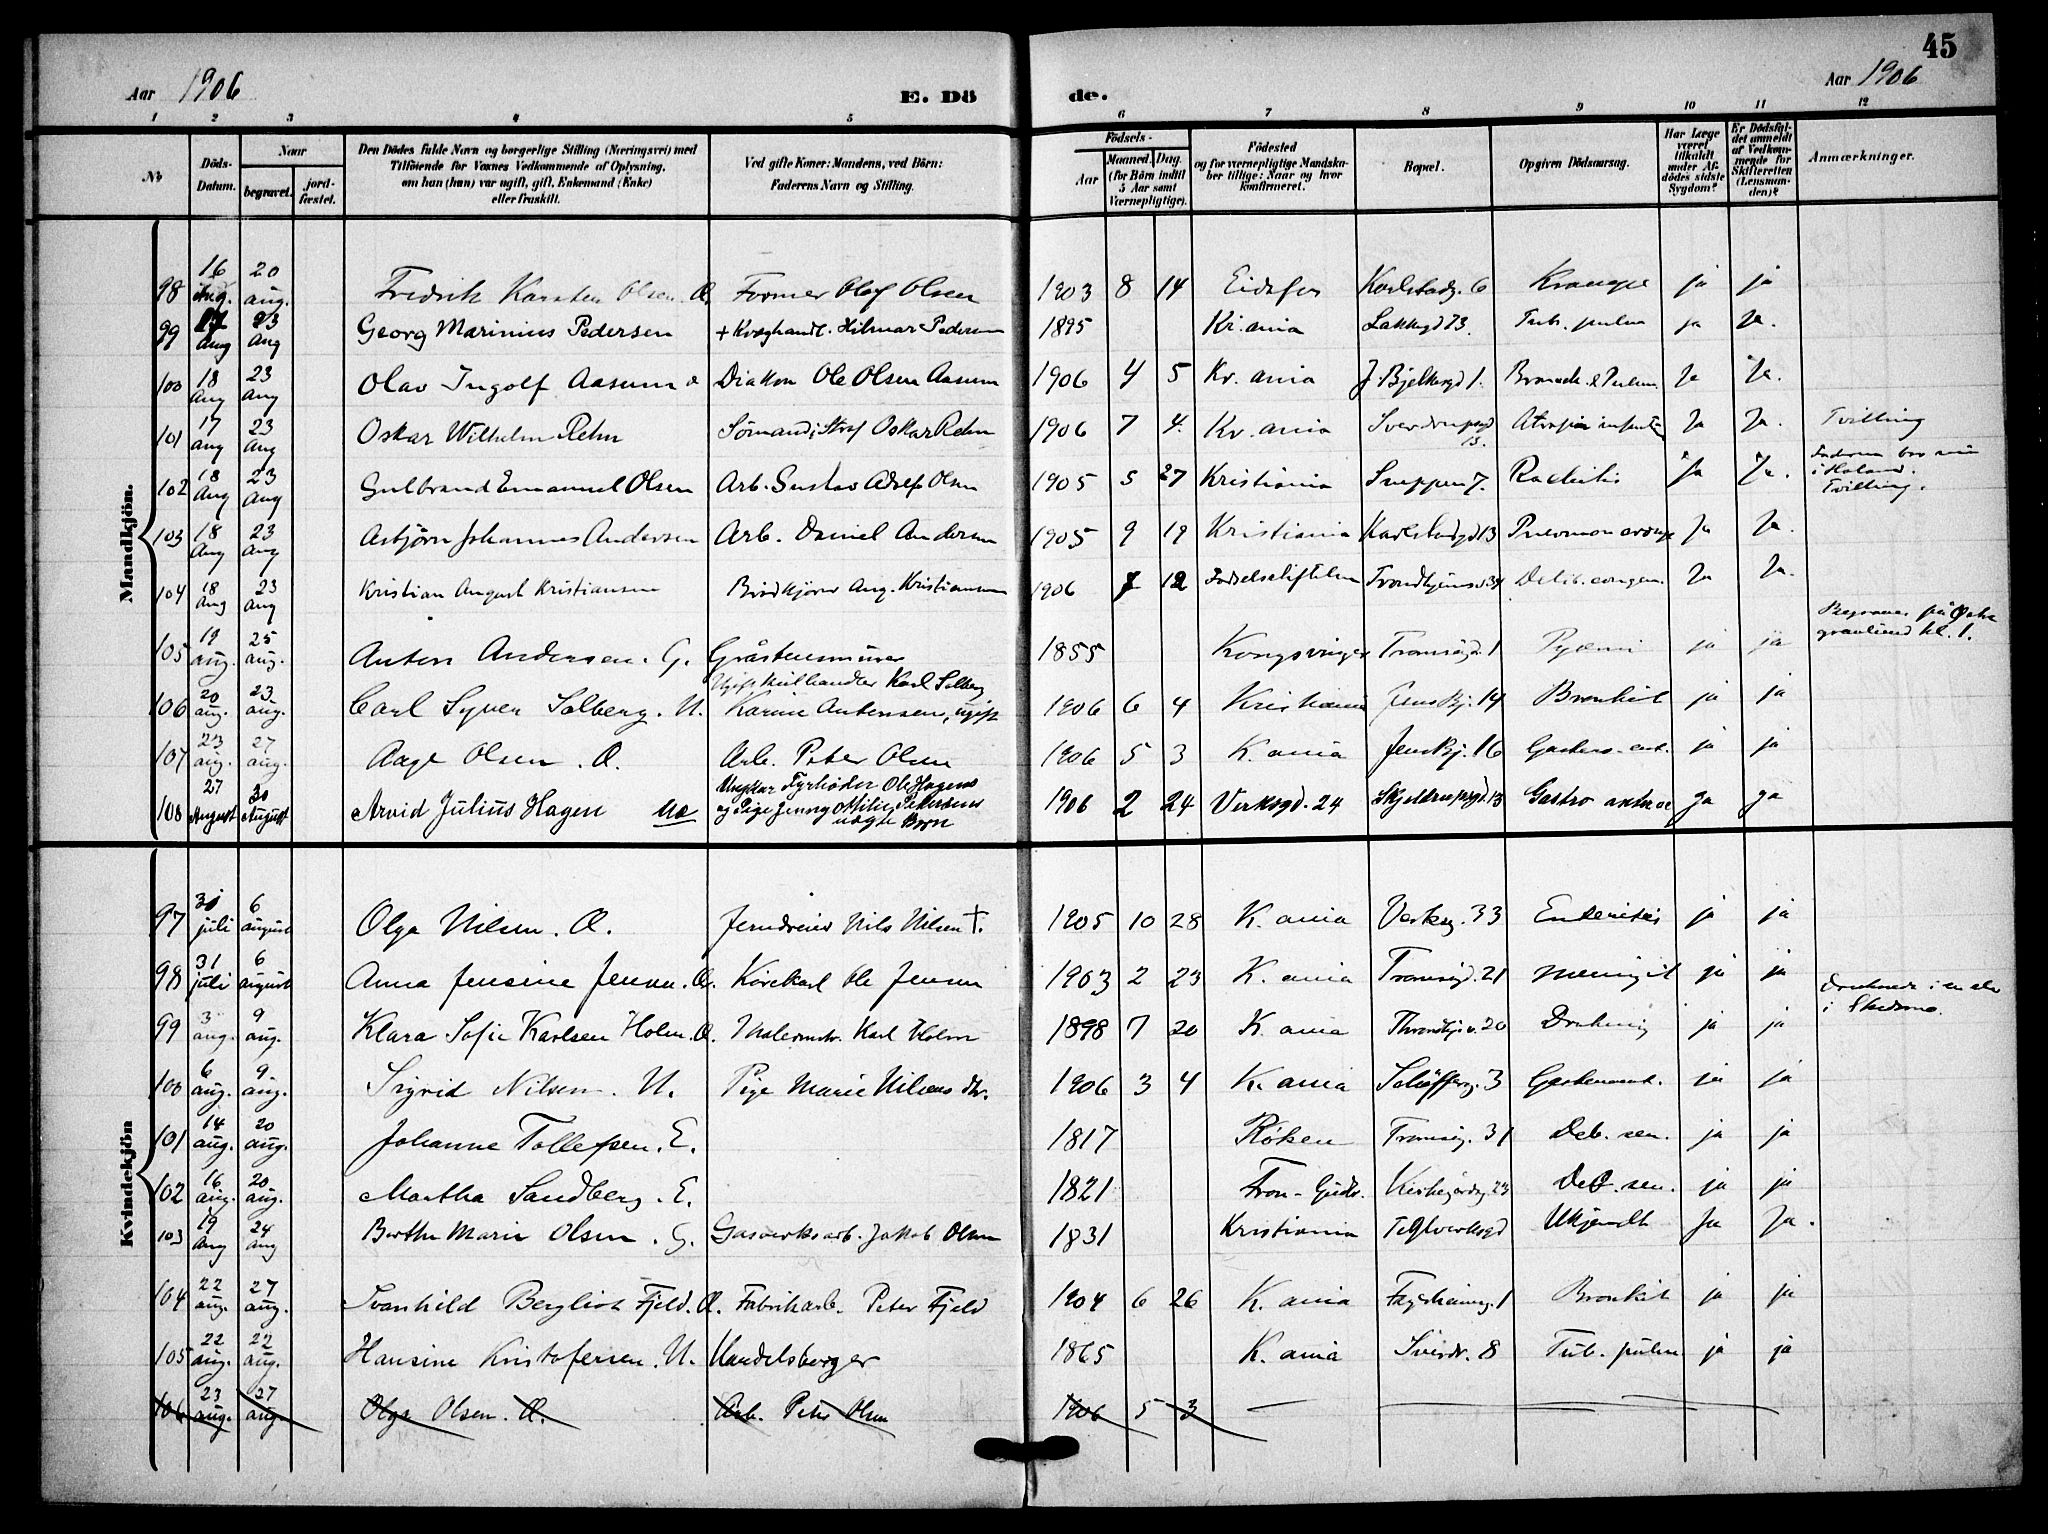 45
Aar 1906
E. Dö de.
Aar 1906
1 2 3 4 5 6 7 8 9 10 11 12
№
Döds-Datum.
Naar
begravet.
jord-fæstet.
Den Dödes fulde Navn og borgerlige Stilling (Næringsvei) med
Tilföiende for Voxnes Vedkommende af Oplysning,
om han (hun) var ugift, gift, Enkemand (Enke)
eller fraskilt.
Ved gifte Koner: Mandens, ved Börn:
Faderens Navn og Stilling.
Födsels-
Aar
Maaned. Dag.
(for Börn indtil
5 Aar samt
Værnepligtige).
Födested
og for værnepligtige Mandska-
ber tillige: Naar og hvor
konfirmeret.
Bopæl.
Opgiven Dödsaarsag.
Har Læge
været
tilkaldt
under Af-
dödes sidste
Sygdom?
Er Dödsfal-
det anmeldt
af Vedkom-
mende for
Skifteretten
(Lensman-
den)?
Anmærkninger.
Mandkjön.
98 16 Aug. 20 aug. Fredrik Karsten Olsen. Æ. Former Olof Olsen 1903 8 14 Eidsfos Karlstadg. 6 Krampe ja ja
99 17 Aug 23 Aug Georg Marinius Pedersen + Kvæghandl. Hilmar Pedersen 1895 Kr.ania Lakkegd 73. Tub. pulm ja Ja.
100 18 Aug 23 Aug Olav Ingolf Aasum Diakon Ole Olsen Aasum 1906 4 5 Kr. ania J. Bjelkesgd 1. Ja Ja.
101 17 aug 23 Aug Oskar Wilhelm Rehn Sömand Oskar Rehn 1906 7 4. Kr. ania Sverdrupsgd 13. Ja Ja. Tvilling
102 18 Aug 23 Aug Gulbrand Emanuel Olsen Arb. Gustav Adolf Olsen 1905 5 27 Kristiania 7. Rachitis Ja Ja. Tvilling.
103 18 Aug 23 Aug Asbjörn Johannes Andersen Arb. Daniel Andersen 1905 9 19 Kristiania Karlstadgd 13 Ja Ja.
104 18 Aug 23 aug Kristian August Kristiansen Aug. Kristiansen 1906 7 12 Fødselsstiftelsen Trondhjemsv. 34 Debil. congen. Ja Ja.
105 19 aug. 25 aug. Anton Andersen. G. Gråstensmurer 1855 Kongsvinger Tromsögd. 1 Pyæmi ja ja gravlund kl. 1.
106 20 aug. 23 aug. Carl Syver Solberg. U. Ugift Kulhandler Karl Solberg
Karine Antensen, ugift 1906 6 4 Kristiania Jens Bj. 14 Bronkit ja ja
107 23 aug. 27 aug. Aage Olsen. Æ. Arb. Peter Olsen 1906 5 3 K. ania Jens Bj. 16 Gastero-ent. ja ja
108 27 August 30 August Arvid Julius Hagen uæ Ungkar Fyrböder Ole Hagens
og Pige Jenny Otilie Petersens
uægte Barn 1906 2 24 Verksgd. 24 Skjeldrupsgd. 13 Gastro ja ja
Kvindekjön
97 30 juli 6 august Olga Nilsen. Æ. Jerndreier Nils Nilsen †. 1905 10 28 K. ania Verksg. 33 Enteritis ja ja
98 31 juli 6 august Anna Jensine Jensen. Æ. Körekarl Ole Jensen 1903 2 23 K. ania Tromsögd. 21 meningit ja ja
99 3 aug. 9 aug. Klara Sofie Karlsen Holm. Æ. Malermstr. Karl Holm 1898 7 20 K. ania Throndhj.v. 20 Drukning ja ja Druknede i en elv
i Skedsmo.
100 6 aug. 9 aug. Sigrid Nilsen. U. Pige Marie Nilsens dtr. 1906 3 4 K. ania Schöfferg. 3 Gasteroent. ja ja
101 14 aug. 20 aug. Johanne Tollefsen. E. 1817 Röken Tromsög. 31 Deb. sen. ja ja
102 16 aug. 20 aug. Martha Sandberg. E. 1821 Fron-Gudbr. Kirkegårdsg. 23 Deb. sen. ja ja
103 19 Aug 24 aug Berthe Marie Olsen. G. Gasverksarb. Jakob Olsen 1831 Kristiania Teglverksgd Ukjendt Ja Ja.
104 22 aug. 27 aug. Svanhild Bergliot Fjeld. Æ. Fabrikarb. Peter Fjeld 1904 6 26 K. ania Fagerheimg. 1 Bronkit ja ja
105 22 aug. 22 aug. Hansine Kristofersen. U. Handelsborger 1865 K. ania Sverdr. 8 Tub. pulm ja ja
106 23 aug. 27 aug. Olga Olsen. Æ. Arb. Peter Olsen 1906 5 3